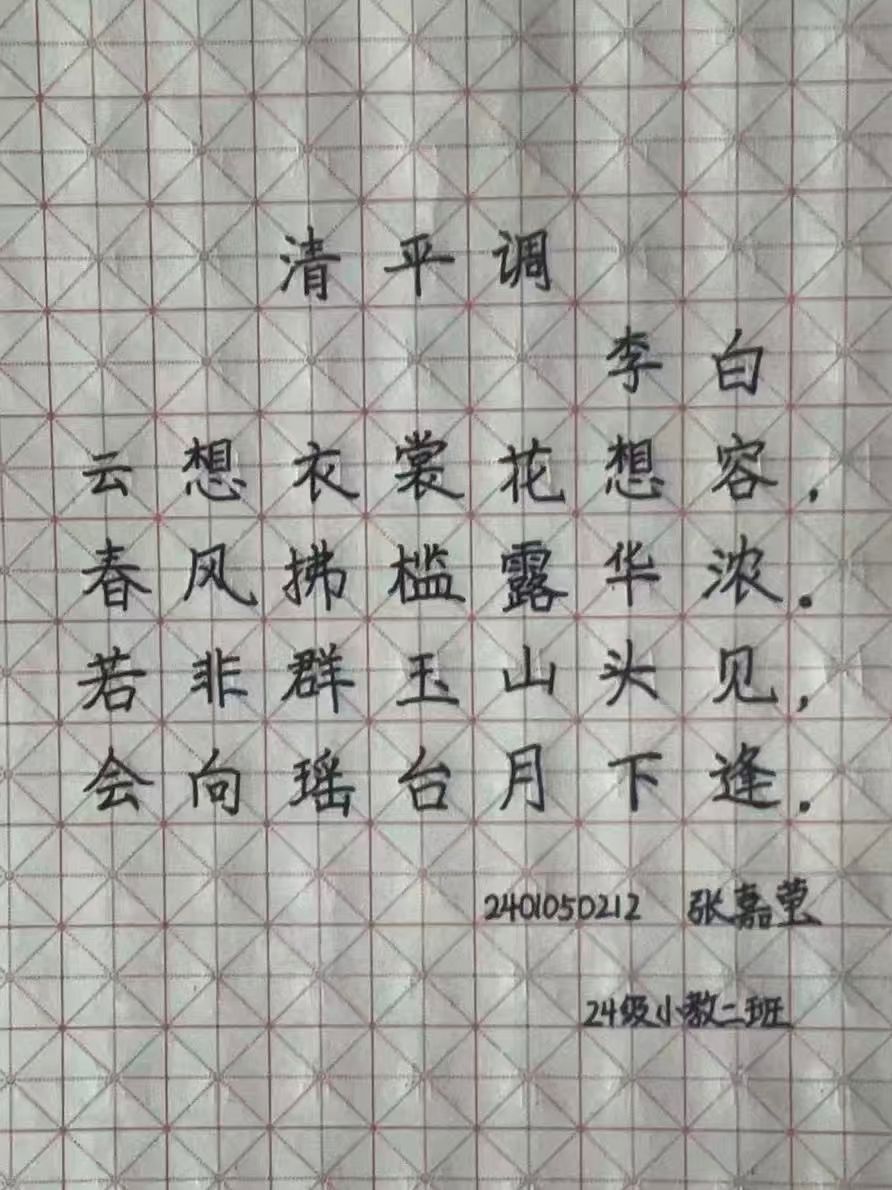 清平调
李白
云想衣裳花想容,
春风拂槛露华浓.
若非群玉山头见,
会向瑶台月下逢.
2401050212 张嘉莹
24级小教二班